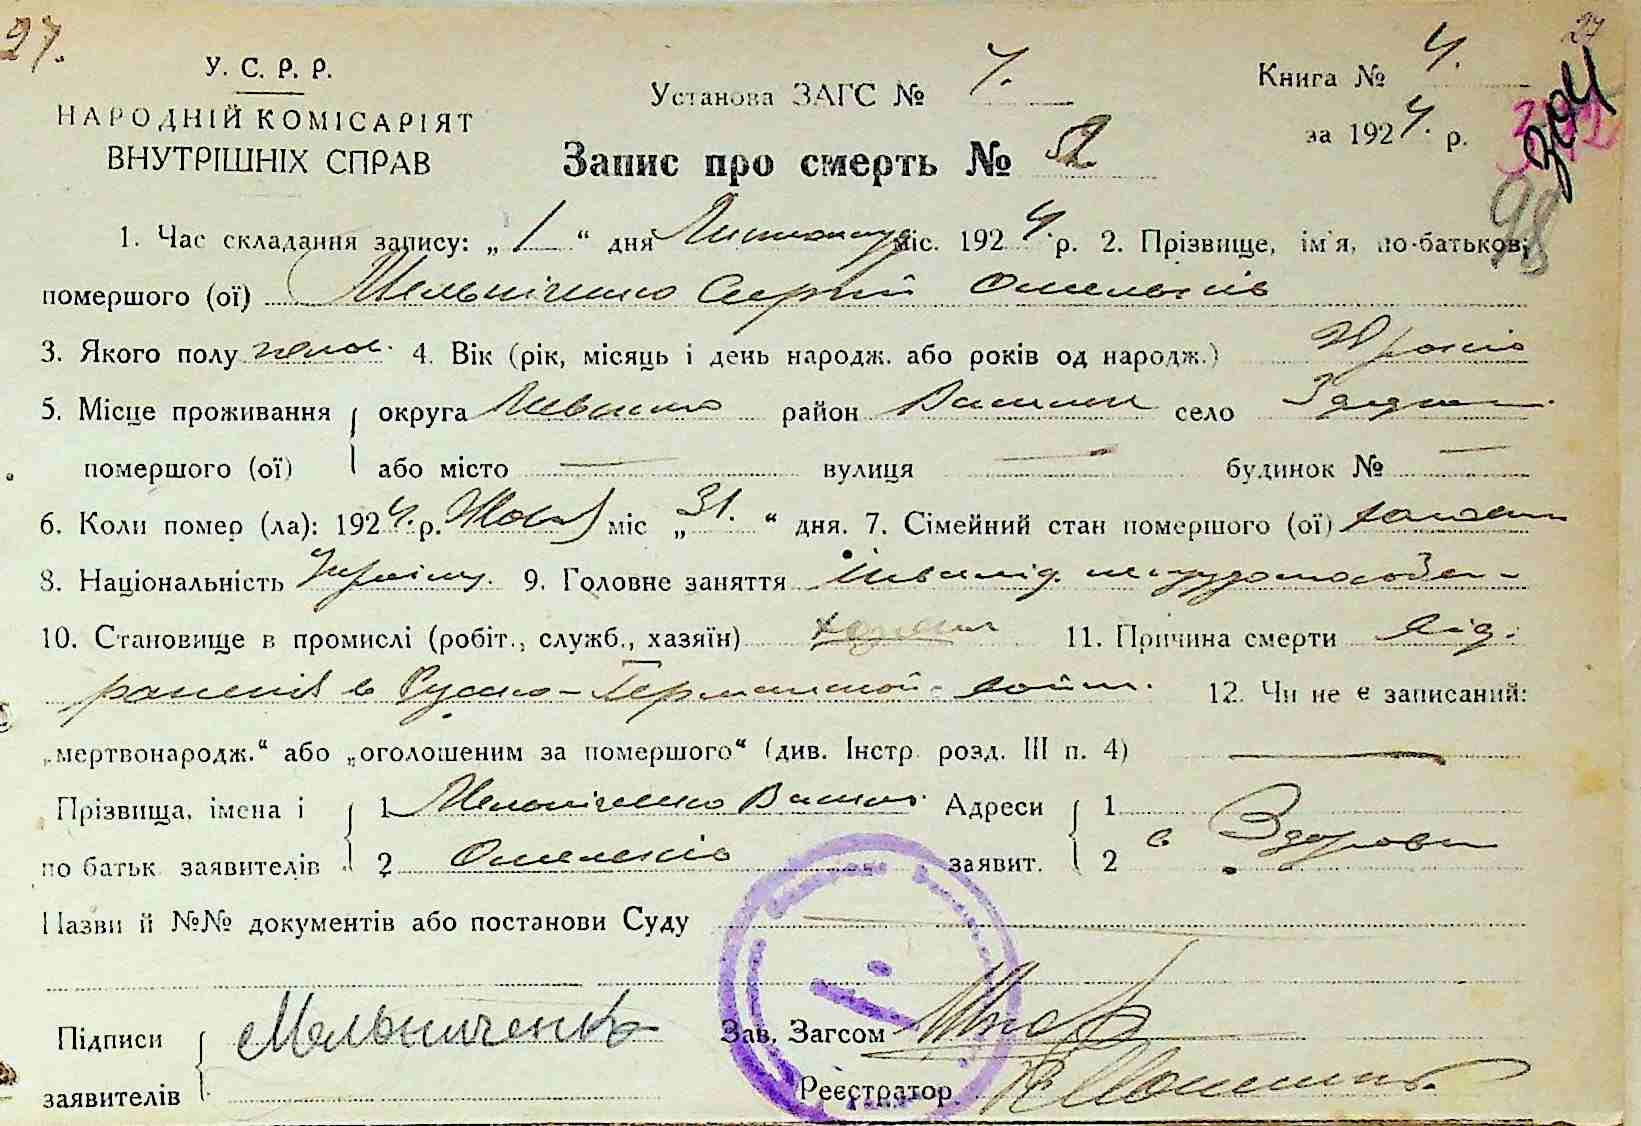 27.
27
У. С. Р. Р.
НАРОДНІЙ КОМІСАРІЯТ
ВНУТРІШНІХ СПРАВ
Установа ЗАГС №
Книга № 4.
за 1924. р.
304
98
Запис про смерть №
1. Час складання запису: „1“ дня Листопада міс. 1924. р. 2. Прізвище, ім'я, по-батькові
помершого (ої) Мельніченко Сергій Омельків
3. Якого полу 4. Вік (рік, місяць і день народж. або років од народж.)
5. Місце проживання округа район село
помершого (ої) або місто — вулиця — будинок № —
6. Коли помер (ла): 1924. р. Жовт міс „31.“ дня. 7. Сімейний стан помершого (ої)
8. Національність Україн. 9. Головне заняття Інвалід
10. Становище в промислі (робіт., служб., хазяїн) 11. Причина смерти від
ранения в Русско-Германской войн.
12. Чи не є записаний:
„мертвонародж.“ або „оголошеним за помершого“ (див. Інстр. розд. III п. 4) —
Прізвища, імена і 1 Мельніченко Адреси 1
по батьк заявителів 2 Омельків заявит. 2
Назви й №№ документів або постанови Суду
Підписи Мельниченко Зав. Загсом
заявителів Реєстратор